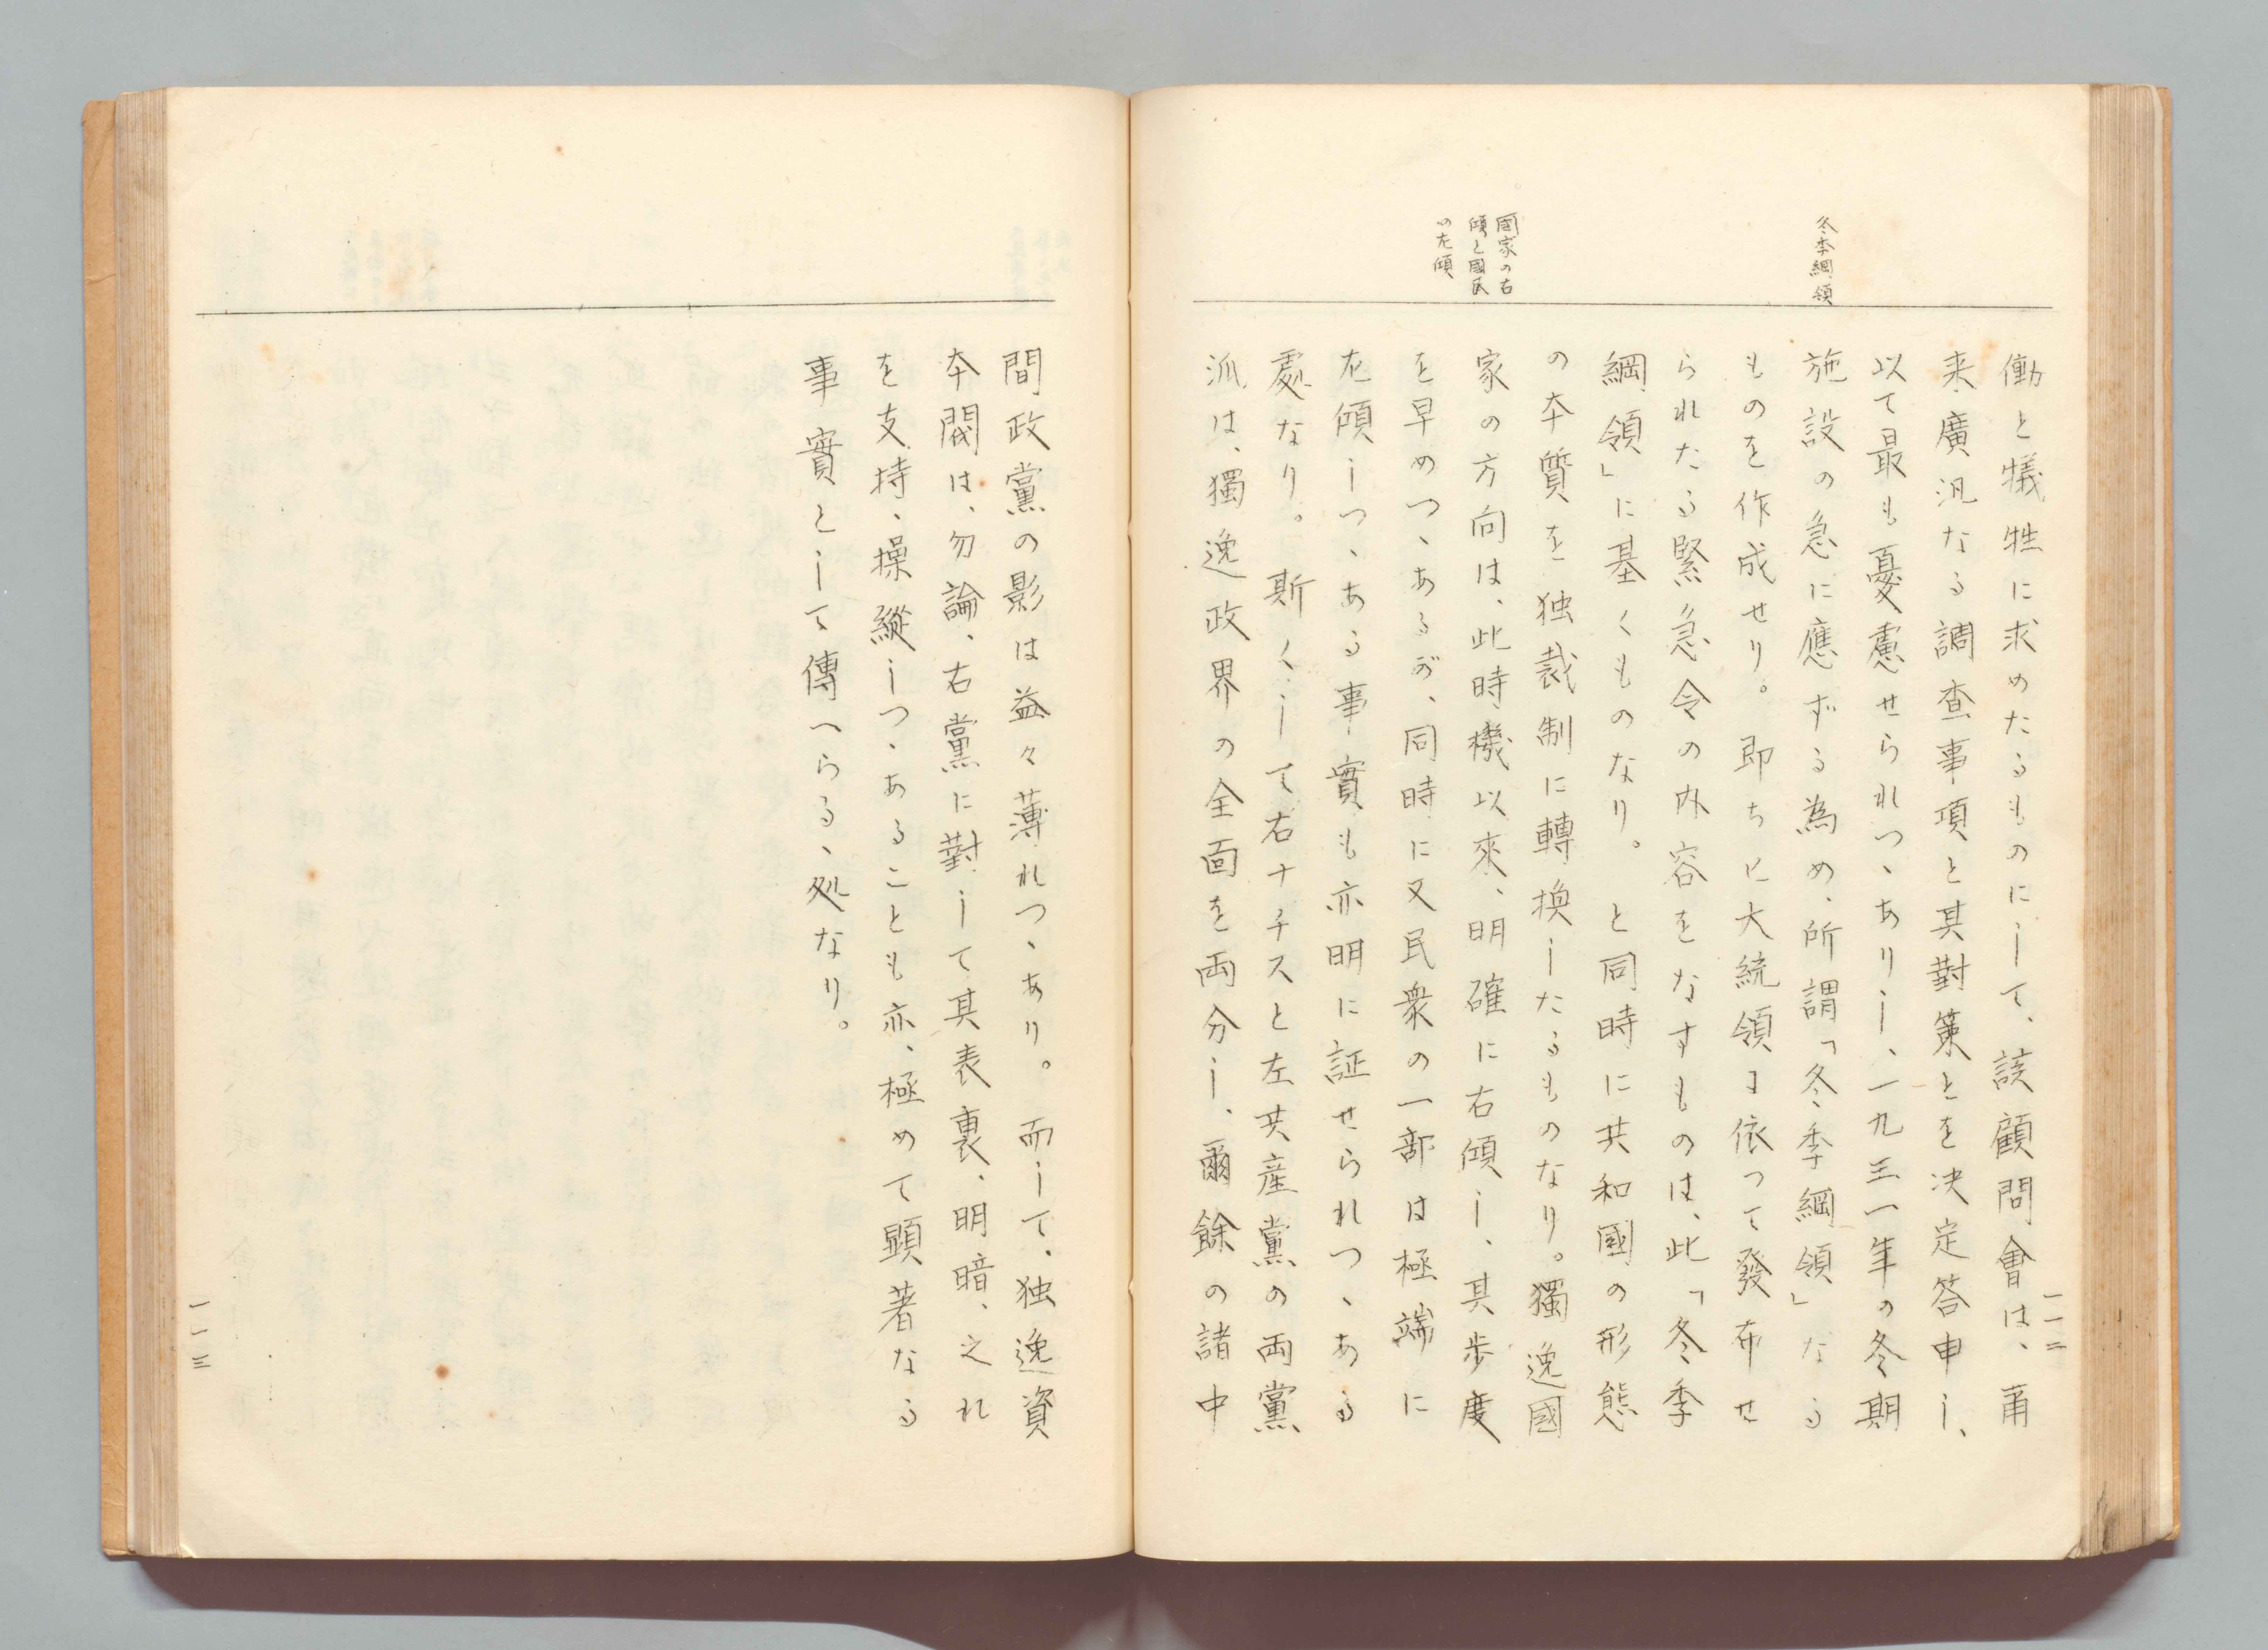 冬季綱領
國家の右
傾と國民
の左傾
働と犠牲に求めたるものにして、該顧問會は、甫
来廣汎なる調査事項と其對策とを决定答申し、
以て最も憂慮せられつゝありし、一九三一年の冬期
施設の急に應ずる為め、所謂「冬季綱領」なる
ものを作成せり。即ちヒ大統領ヨ依って發布せ
られたる緊急令の内容をなすものは、此「冬季
綱領」に基くものなり。と同時に共和國の形態
の本質を独裁制に轉換したるものなり。獨逸國
家の方向は、此時機以來、明確に右傾し、其歩度
を早めつゝあるが、同時に又民衆の一部は極端に
左傾しつゝある事實も亦明に証せられつゝある
處なり。斯くして右ナチスと左共産黨の両黨
派は、獨逸政界の全面を両分し、爾餘の諸中
一一二
間政黨の影は益々薄れつゝあり。而して、独逸資
本閥は、勿論、右黨に對して其表裏、明暗、之れ
を支持、操縦しつゝあることも亦、極めて顕著なる
事實として傳へらるゝ処なり。
一一三